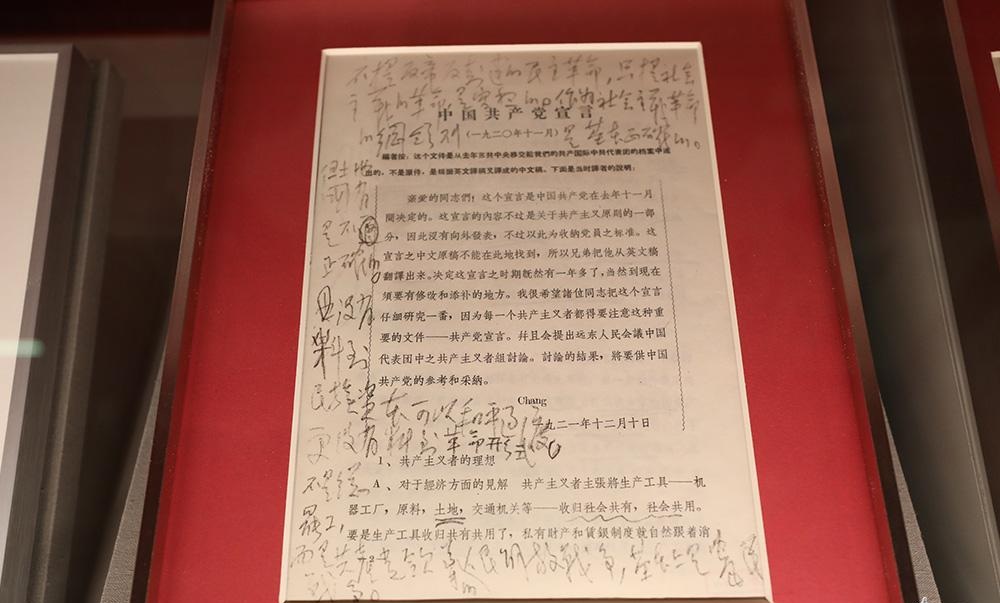 不提反帝反封建的民主革命,只提社会
主义的革命,是空想的。作为社会主义革命
的纲领则 是基本正确的。
中国共产党宣言
(一九二〇年十一月)
編者按:这个文件是从去年苏共中央移交給我們的共产国际中共代表团的档案中选
出的,不是原件,是根据英文譯稿又譯成的中文稿。下面是当时譯者的說明:
亲爱的同志們!这个宣言是中国共产党在去年十一月
間决定的。这宣言的內容不过是关于共产主义原則的一部
分,因此沒有向外發表,不过以此为收納党員之标准。这
宣言之中文原稿不能在此地找到,所以兄弟把他从英文稿
翻譯出来。决定这宣言之时期既然有一年多了,当然到現在
須要有修改和添补的地方。我很希望諸位同志把这个宣言
仔細研究一番,因为每一个共产主义者都得要注意这种重
要的文件——共产党宣言。幷且会提出远东人民会議中国
代表团中之共产主义者組討論。討論的結果,將要供中国
共产党的参考和采納。
Chang
一九二一年十二月十日
1、共产主义者的理想
A、对于經济方面的見解 共产主义者主張將生产工具——机
器工厂,原料,土地,交通机关等——收归社会共有,社会共用。
要是生产工具收归共有共用了,私有財产和賃銀制度就自然跟着消
但土地
国有
是不
正确的。
且没有
料到
民族资本可以和平过渡。
更没有料到革命形式
不是总
罢工,
而是共产党领导的人民解放战争,基本上是农民
战争。